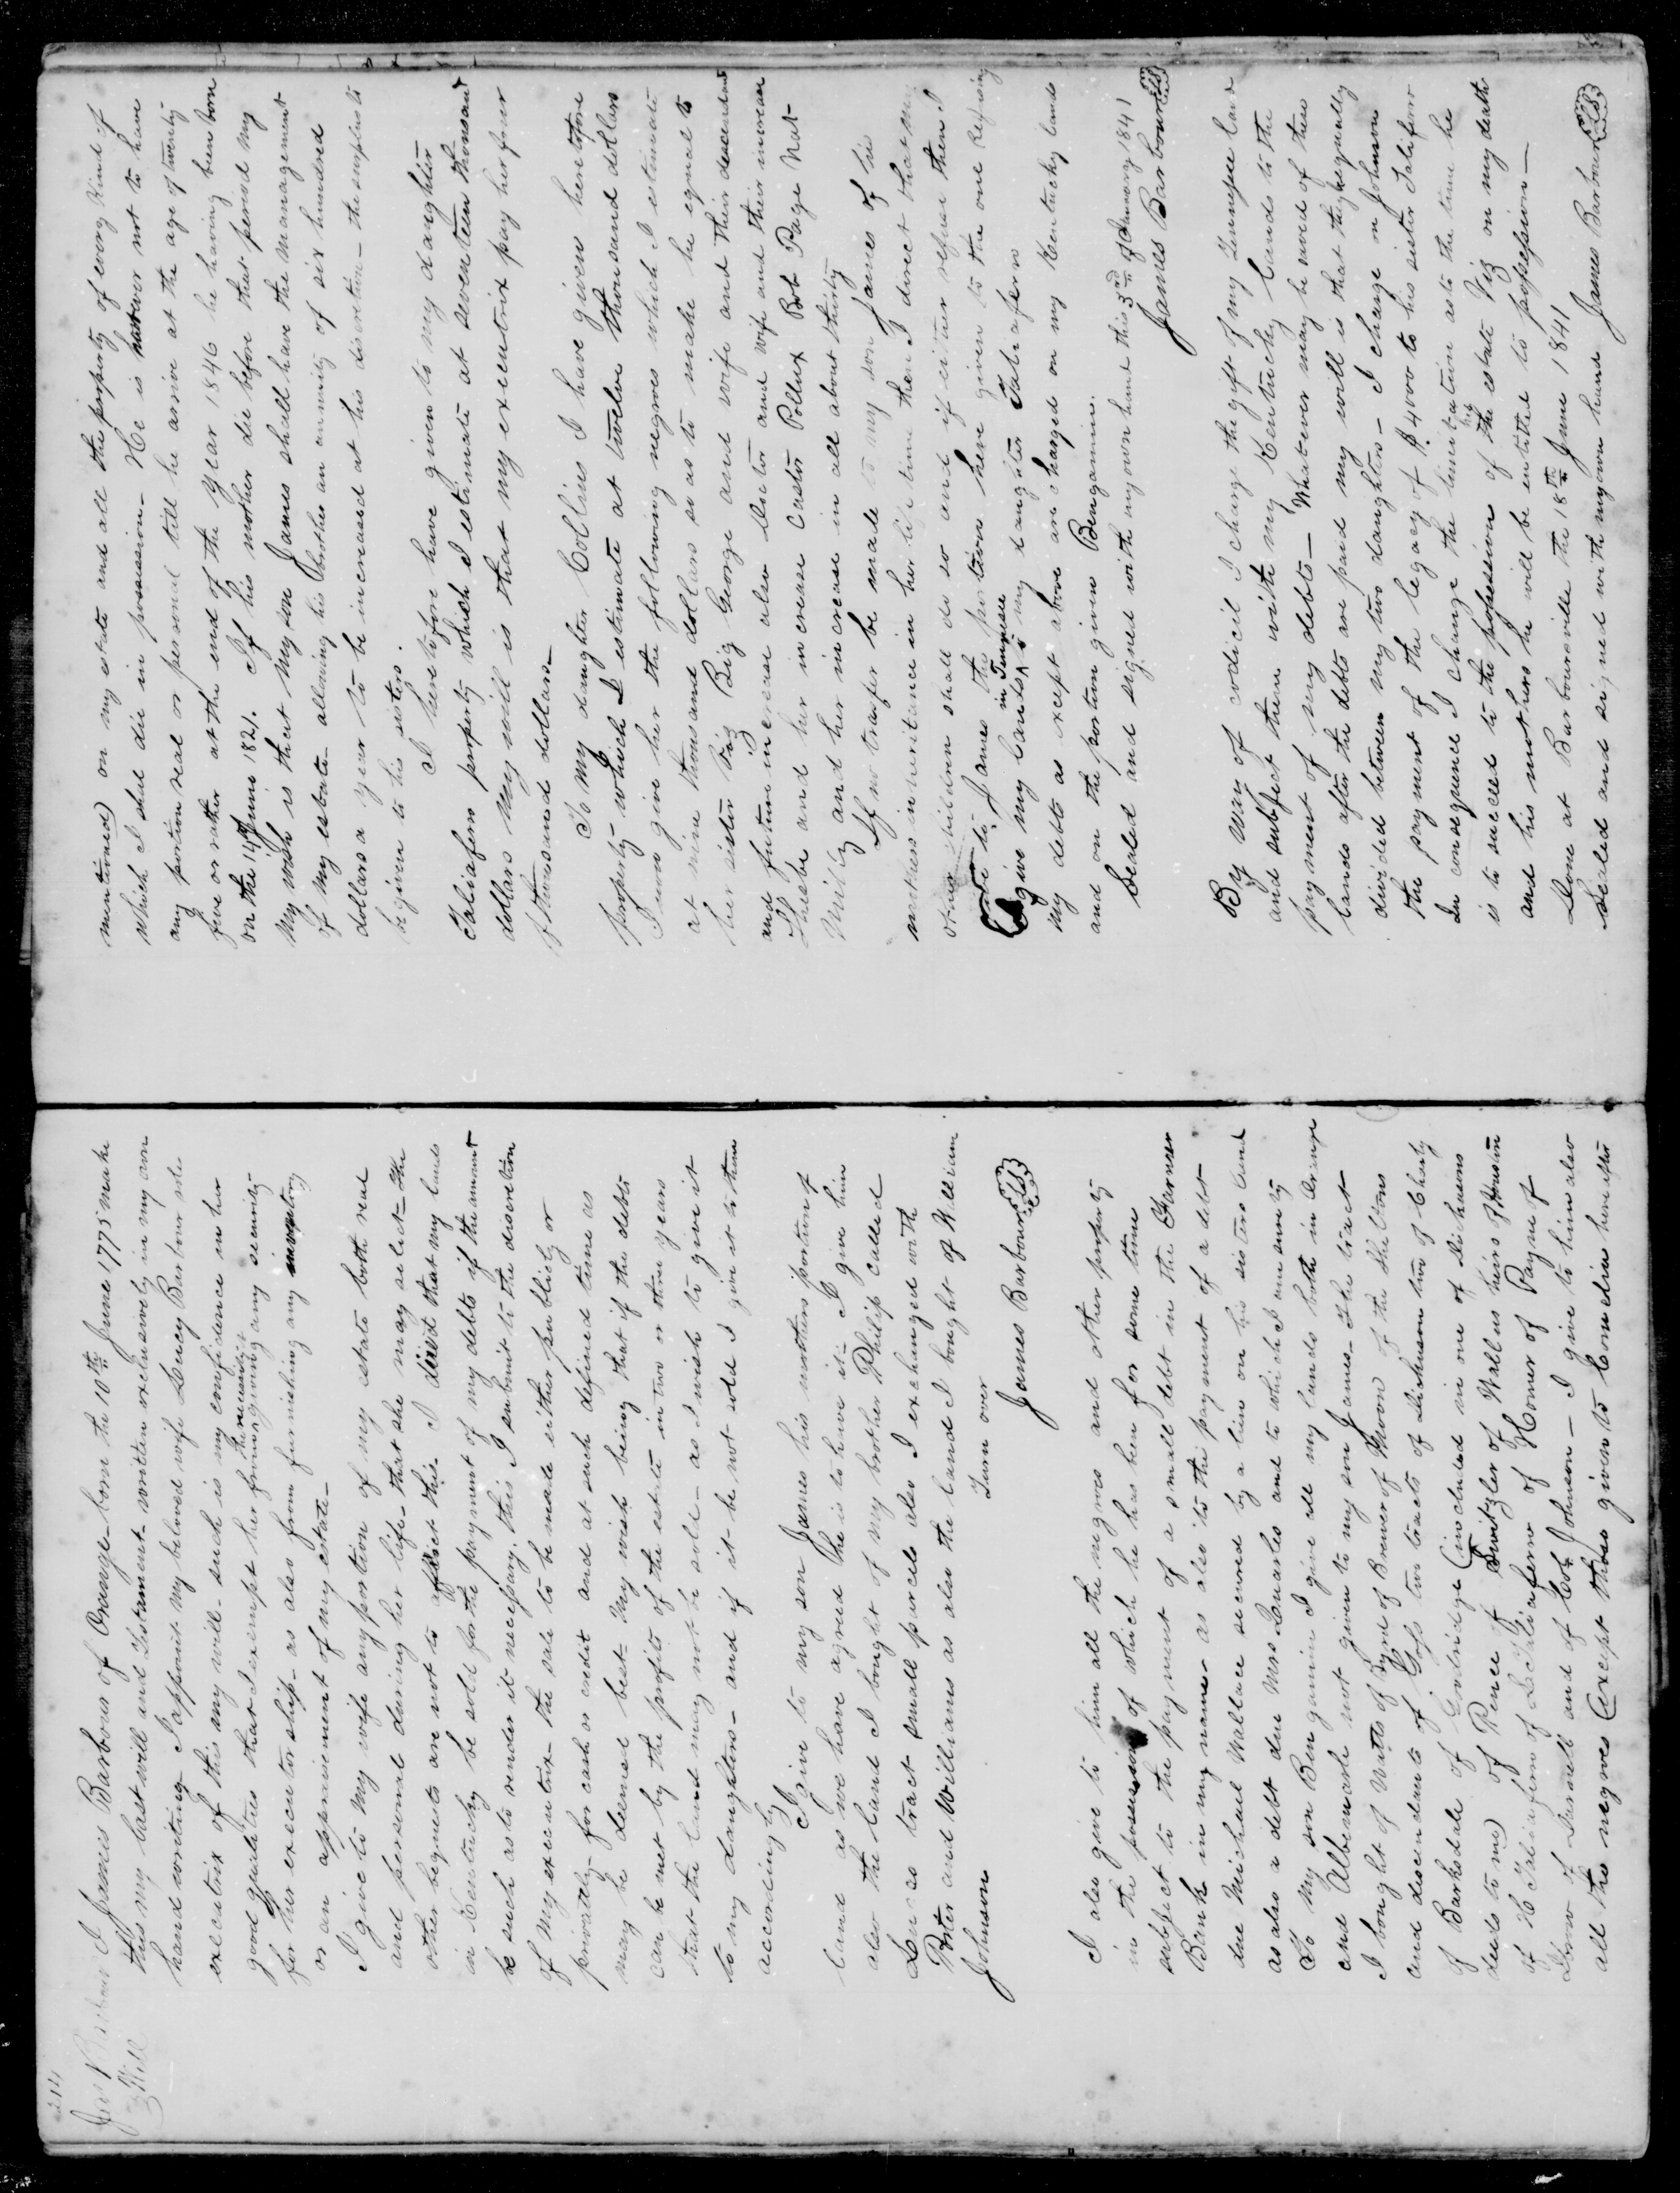 214
Jas Barbour
Will
I James Barbour of Orange born the 10th June 1775 make
this my last will and Testament written exclusively in my own
hand writing. I appoint my beloved wife Lucy Barbour sole
executrix of this my will - such is my confidence in her
good qualities that I exempt her from the necessity giving any security
for her executorship - as also from furnishing any inventory
or an appraisement of my estate -
I give to my wife any portion of my estate both real
and personal during her life - that she may select - The
other bequests are not to affect this I direct that my lands
in Kentucky be sold for the payment of my debts if the amount
be such as to render it necessary. this I submit to the discretion
of my executrix - the sale to be made either publicly or
privately - for cash or credit and at such defined time as
may be deemed best - My wish being that if the debts
can be met by the profits of the estate in two or three years
that the land may not be sold - as I wish to give it
to my daughters - and if it be not sold I give it to them
accordingly
I give to my son James his mothers portion of
land as we have agreed he is to have it - I give him
also the land I bought of my brother Philip called
tract small parcels also I exchanged with
Porter and Williams as also the land I bought of William
Johnson
Turn over
James Barbour LS
I also give to him all the negroes and other property
in the possession of which he has been for some time
subject to the payment of a small debt in the Farmer
Bank in my name - as also to the payment of a debt
due Michael Wallace secured by a lien on his sisters land
as also a debt due Mrs Quarles and to which I am surety
To my son Bengamin I give all my lands both in Orange
and Albemarle not given to my son James - The tract
I bought of Watts of Byant of Brewer of Moon of the Sheltons
and descendants of Goss two tracts of Dickinson two of Charly
of Barksdale of Goodridge (included in one of Dickinsons
deeds to me) of Pence of Switzler of Wallus heirs of Houston
of H Taliaferro of Dr Taliaferro of Horner of Payne of
Snow of Durrett and of Col. Johnson - I give to him also
all the negroes (except those given to Cornelia hereafter
mentioned) on my estate and all the property of every kind of
which I shall die in possession - He is however not to have
any portion real or personal till he arrive at the age of twenty
five or rather at the end of the year 1846 he having been born
on the 14th June 1821. If his mother die before that period my
my wish is that my son James shall have the management
of my estate allowing his brother an annuity of six hundred
dollars a year to be increased at his discretion - the surplus to
be given to his sisters.
I heretofore have given to my daughter
Taliaferro property which I estimate at seventeen thousand
dollars my will is that my executrix pay her four
thousand dollars -
To my daughter Collins I have given heretofore
property which I estimate at twelve thousand dollars
I now give her the following negroes which I estimate
at nine thousand dollars so as to make her equal to
her sister Viz Big George and wife and their descendants
and future increase also Doctor and wife and their increase
Phoebe and her increase Castor Pollux Bob Page Nat -
Milly and her increase in all about thirty
If no transfer be made to my son James of his
mothers inheritance in her life time then I direct that my
other children shall do so and if either refuse then I
to James the portion here given to the one refusing
I give my lands in Tennessee to my daughter Taliaferro
My debts as except above are charged on my Kentucky lands
and on the portion given Bengamin.
Sealed and signed with my own hand this 3rd of January 1841
James Barbour LS
By way of codicil I charge the gift of my Tennessee land
and subject them with my Kentucky lands to the
payment of my debts - Whatever may be saved of these
lands after the debts are paid my will is that they be equally
divided between my two daughters - I charge on Johnson
the payment of the legacy of $4000 to his sister Taliaferro
In consequence I change the limitation as to the time he
is to succeed to the possession of the estate Viz on my death
and his mothers he will be entitled to possession -
Done at Barboursville the 18th June 1841
Sealed and signed with my own hand James Barbour LS